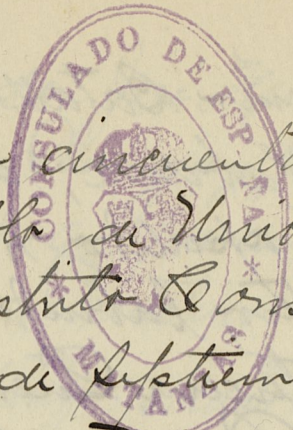 CONSULADO DE ESPAÑA
* MATANZAS *
cincuenta
de Unió
Cons
de septiem